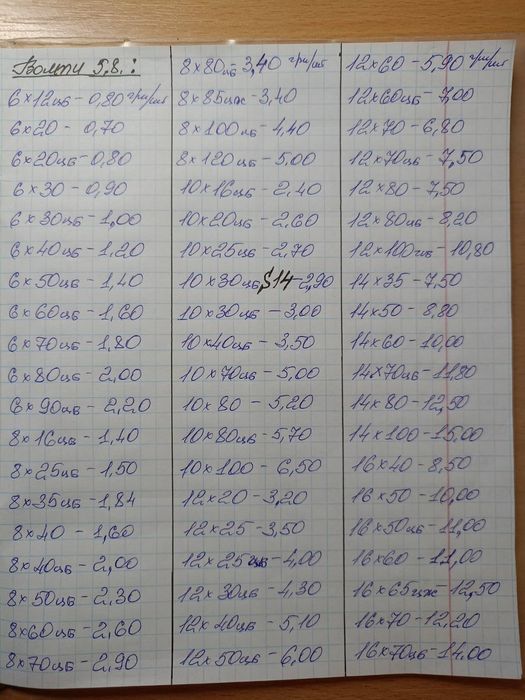 Болти 5.8.:
6×12цб-0,80 грн/шт
6×20-0,70
6×20цб-0,80
6×30-0,90
6×30цб-1,00
6×40цб-1,20
6×50цб-1,40
6×60цб-1,60
6×70цб-1,80
6×80цб-2,00
6×90цб-2,20
8×16цб-1,40
8×25цб-1,50
8×35цб-1,84
8×40-1,60
8×40цб-2,00
8×50цб-2,30
8×60цб-2,60
8×70цб-2,90
8×80цб-3,40 грн/шт
8×85цж-3,40
8×100цб-4,40
8×120цб-5,00
10×16цб-2,40
10×20цб-2,60
10×25цб-2,70
10×30цб,S14-2,90
10×30цб-3,00
10×40цб-3,50
10×70цб-5,00
10×80-5,20
10×80цб-5,70
10×100-6,50
12×20-3,20
12×25-3,50
12×25цб-4,00
12×30цб-4,30
12×40цб-5,10
12×50цб-6,00
12×60-5,90 грн/шт
12×60цб-7,00
12×70-6,80
12×70цб-7,50
12×80-7,50
12×80цб-8,20
12×100цб-10,80
14×35-7,50
14×50-8,80
14×60-10,00
14×70цб-11,80
14×80-12,50
14×100-15,00
16×40-8,50
16×50-10,00
16×50цб-11,00
16×60-11,00
16×65цж-12,50
16×70-12,20
16×70цб-14,00